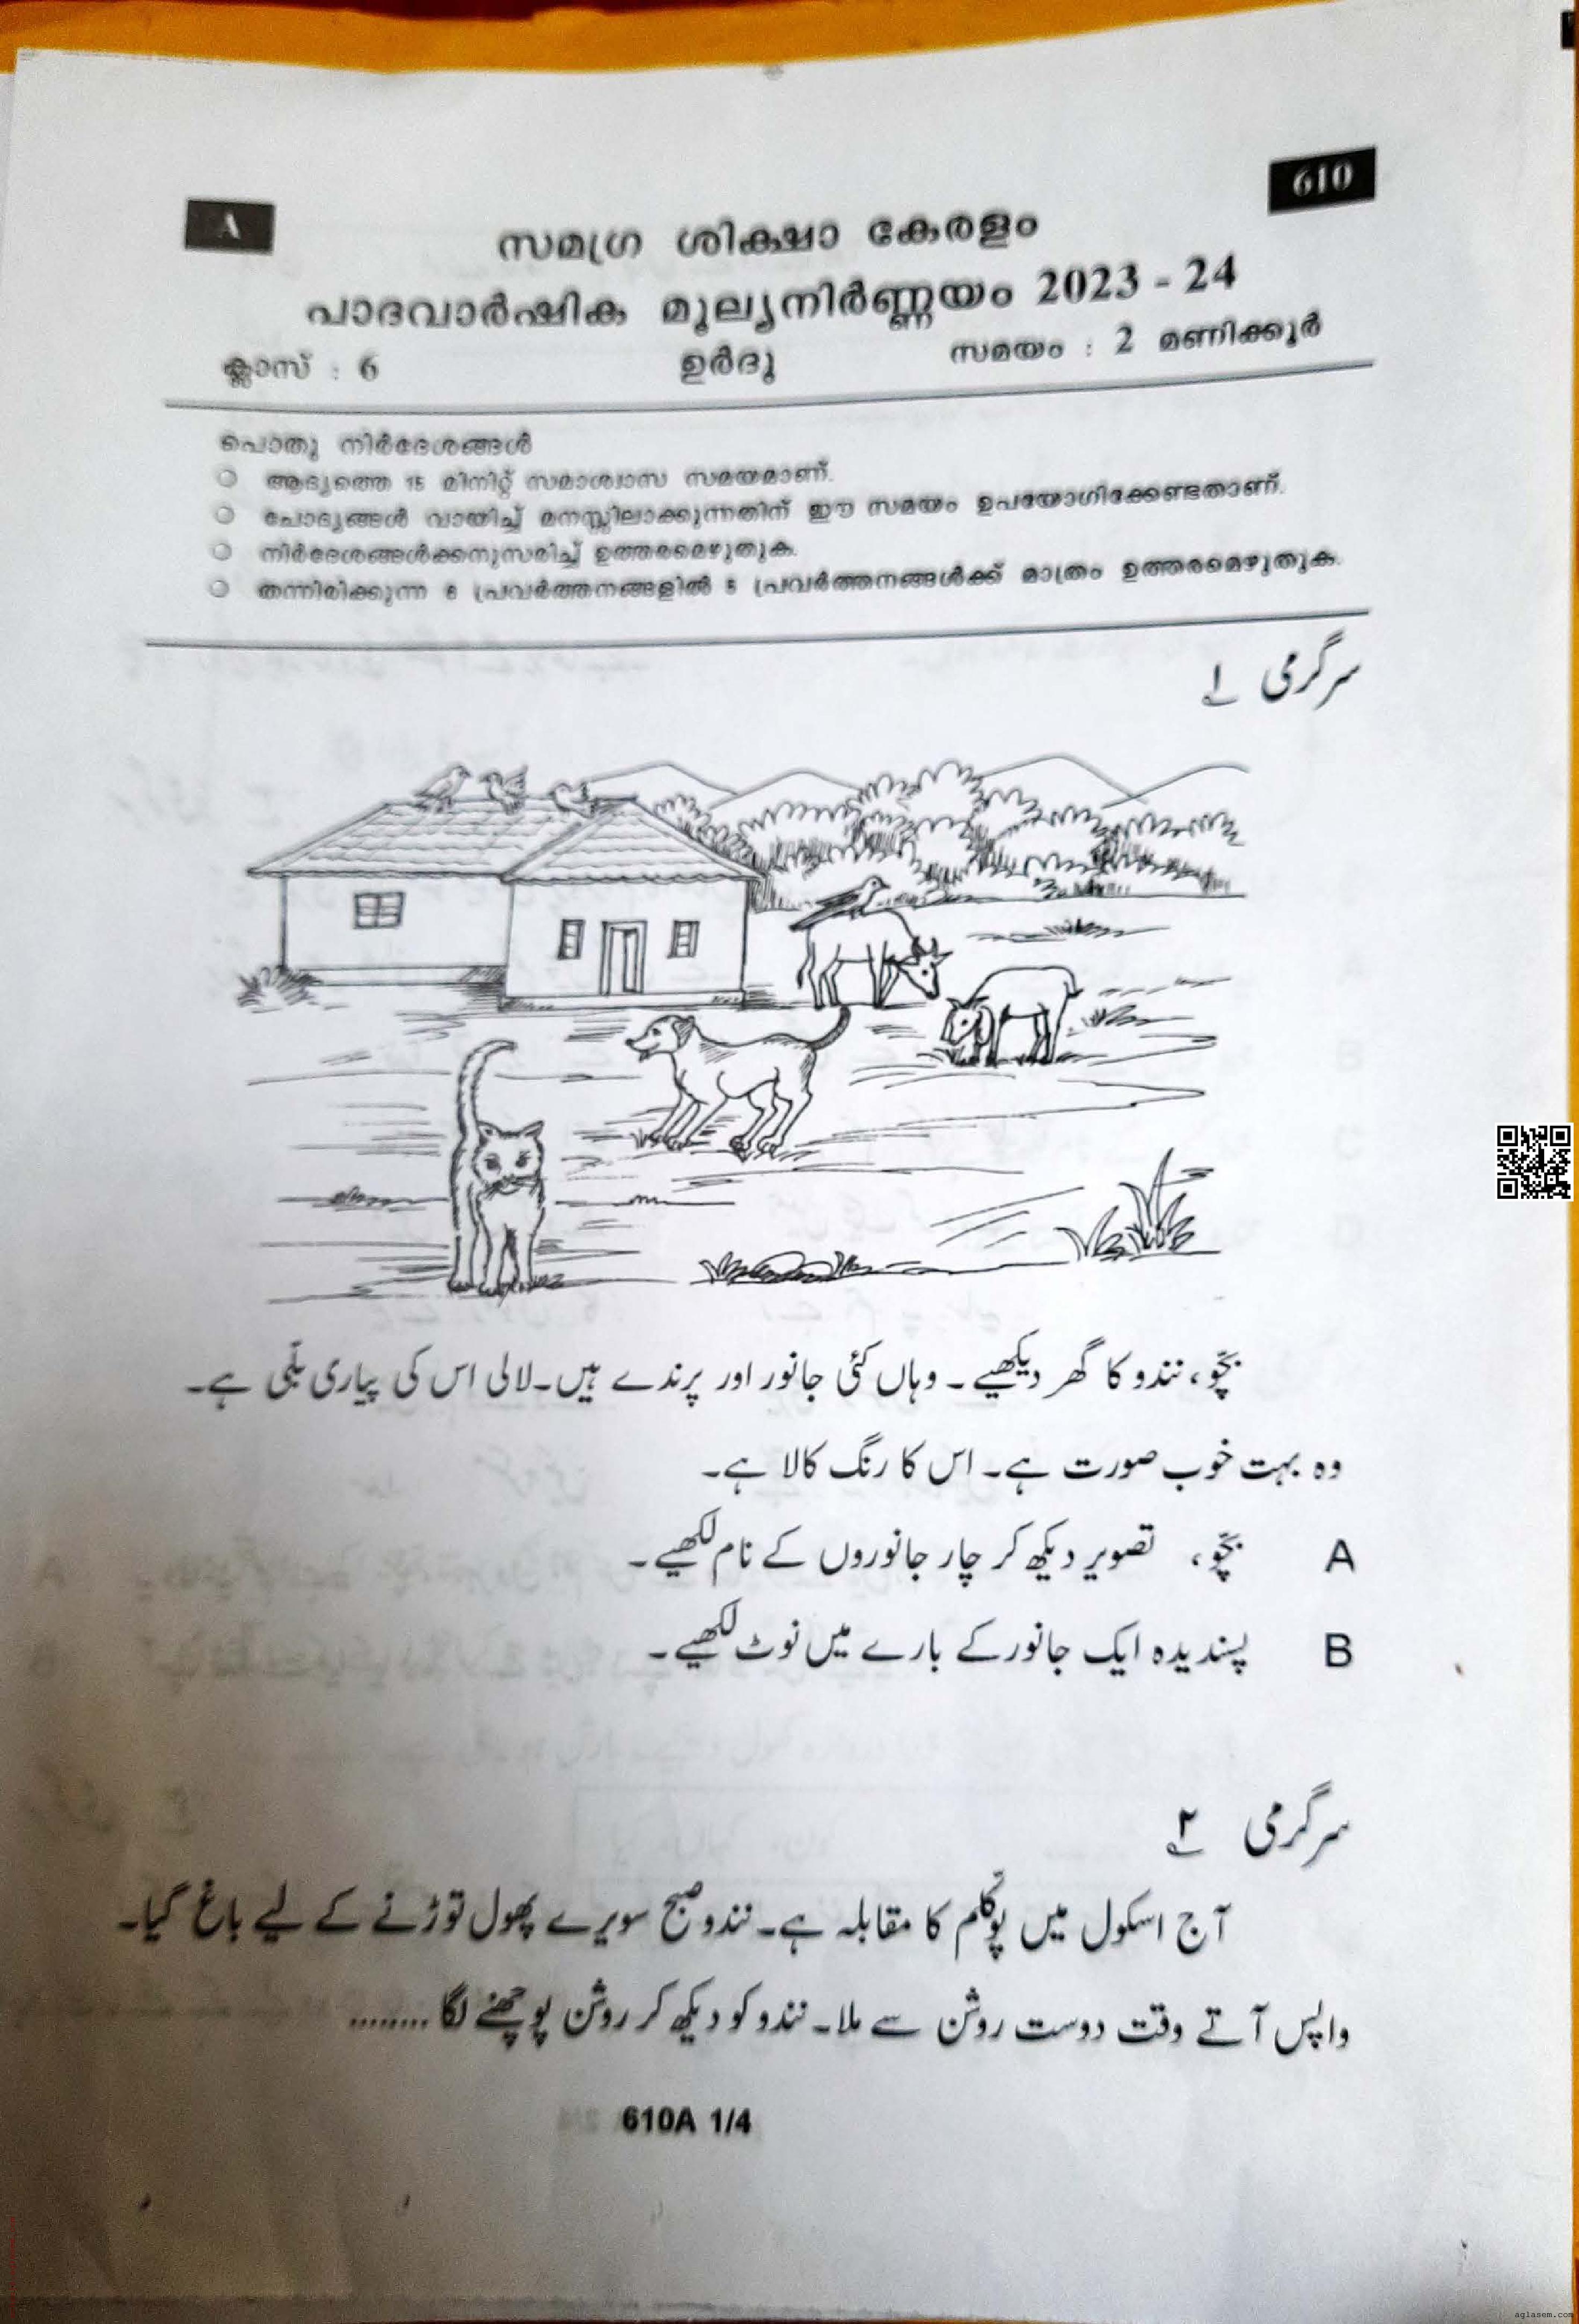 610
A
സമഗ്ര ശിക്ഷാ കേരളം
പാദവാർഷിക മൂല്യനിർണ്ണയം 2023 - 24
ക്ലാസ് : 6 ഉർദു സമയം : 2 മണിക്കൂർ
പൊതു നിർദേശങ്ങൾ
ആദ്യത്തെ 15 മിനിറ്റ് സമാശ്വാസ സമയമാണ്.
ചോദ്യങ്ങൾ വായിച്ച് മനസ്സിലാക്കുന്നതിന് ഈ സമയം ഉപയോഗിക്കേണ്ടതാണ്.
നിർദേശങ്ങൾക്കനുസരിച്ച് ഉത്തരമെഴുതുക.
തന്നിരിക്കുന്ന 6 പ്രവർത്തനങ്ങളിൽ 5 പ്രവർത്തനങ്ങൾക്ക് മാത്രം ഉത്തരമെഴുതുക.
سرگرمی ۱
بچّو، نندو کا گھر دیکھیے ۔ وہاں کئی جانور اور پرندے ہیں۔لالی اس کی پیاری بلّی ہے۔
وہ بہت خوب صورت ہے۔ اس کا رنگ کالا ہے۔
A بچّو، تصویر دیکھ کر چار جانوروں کے نام لکھیے۔
B پسندیدہ ایک جانور کے بارے میں نوٹ لکھیے۔
سرگرمی ۲
آج اسکول میں پوکّلم کا مقابلہ ہے۔ نندو صبح سویرے پھول توڑنے کے لیے باغ گیا۔
واپس آتے وقت دوست روشن سے ملا۔ نندو کو دیکھ کر روشن پوچھنے لگا ........
610A 1/4
aglasem.com